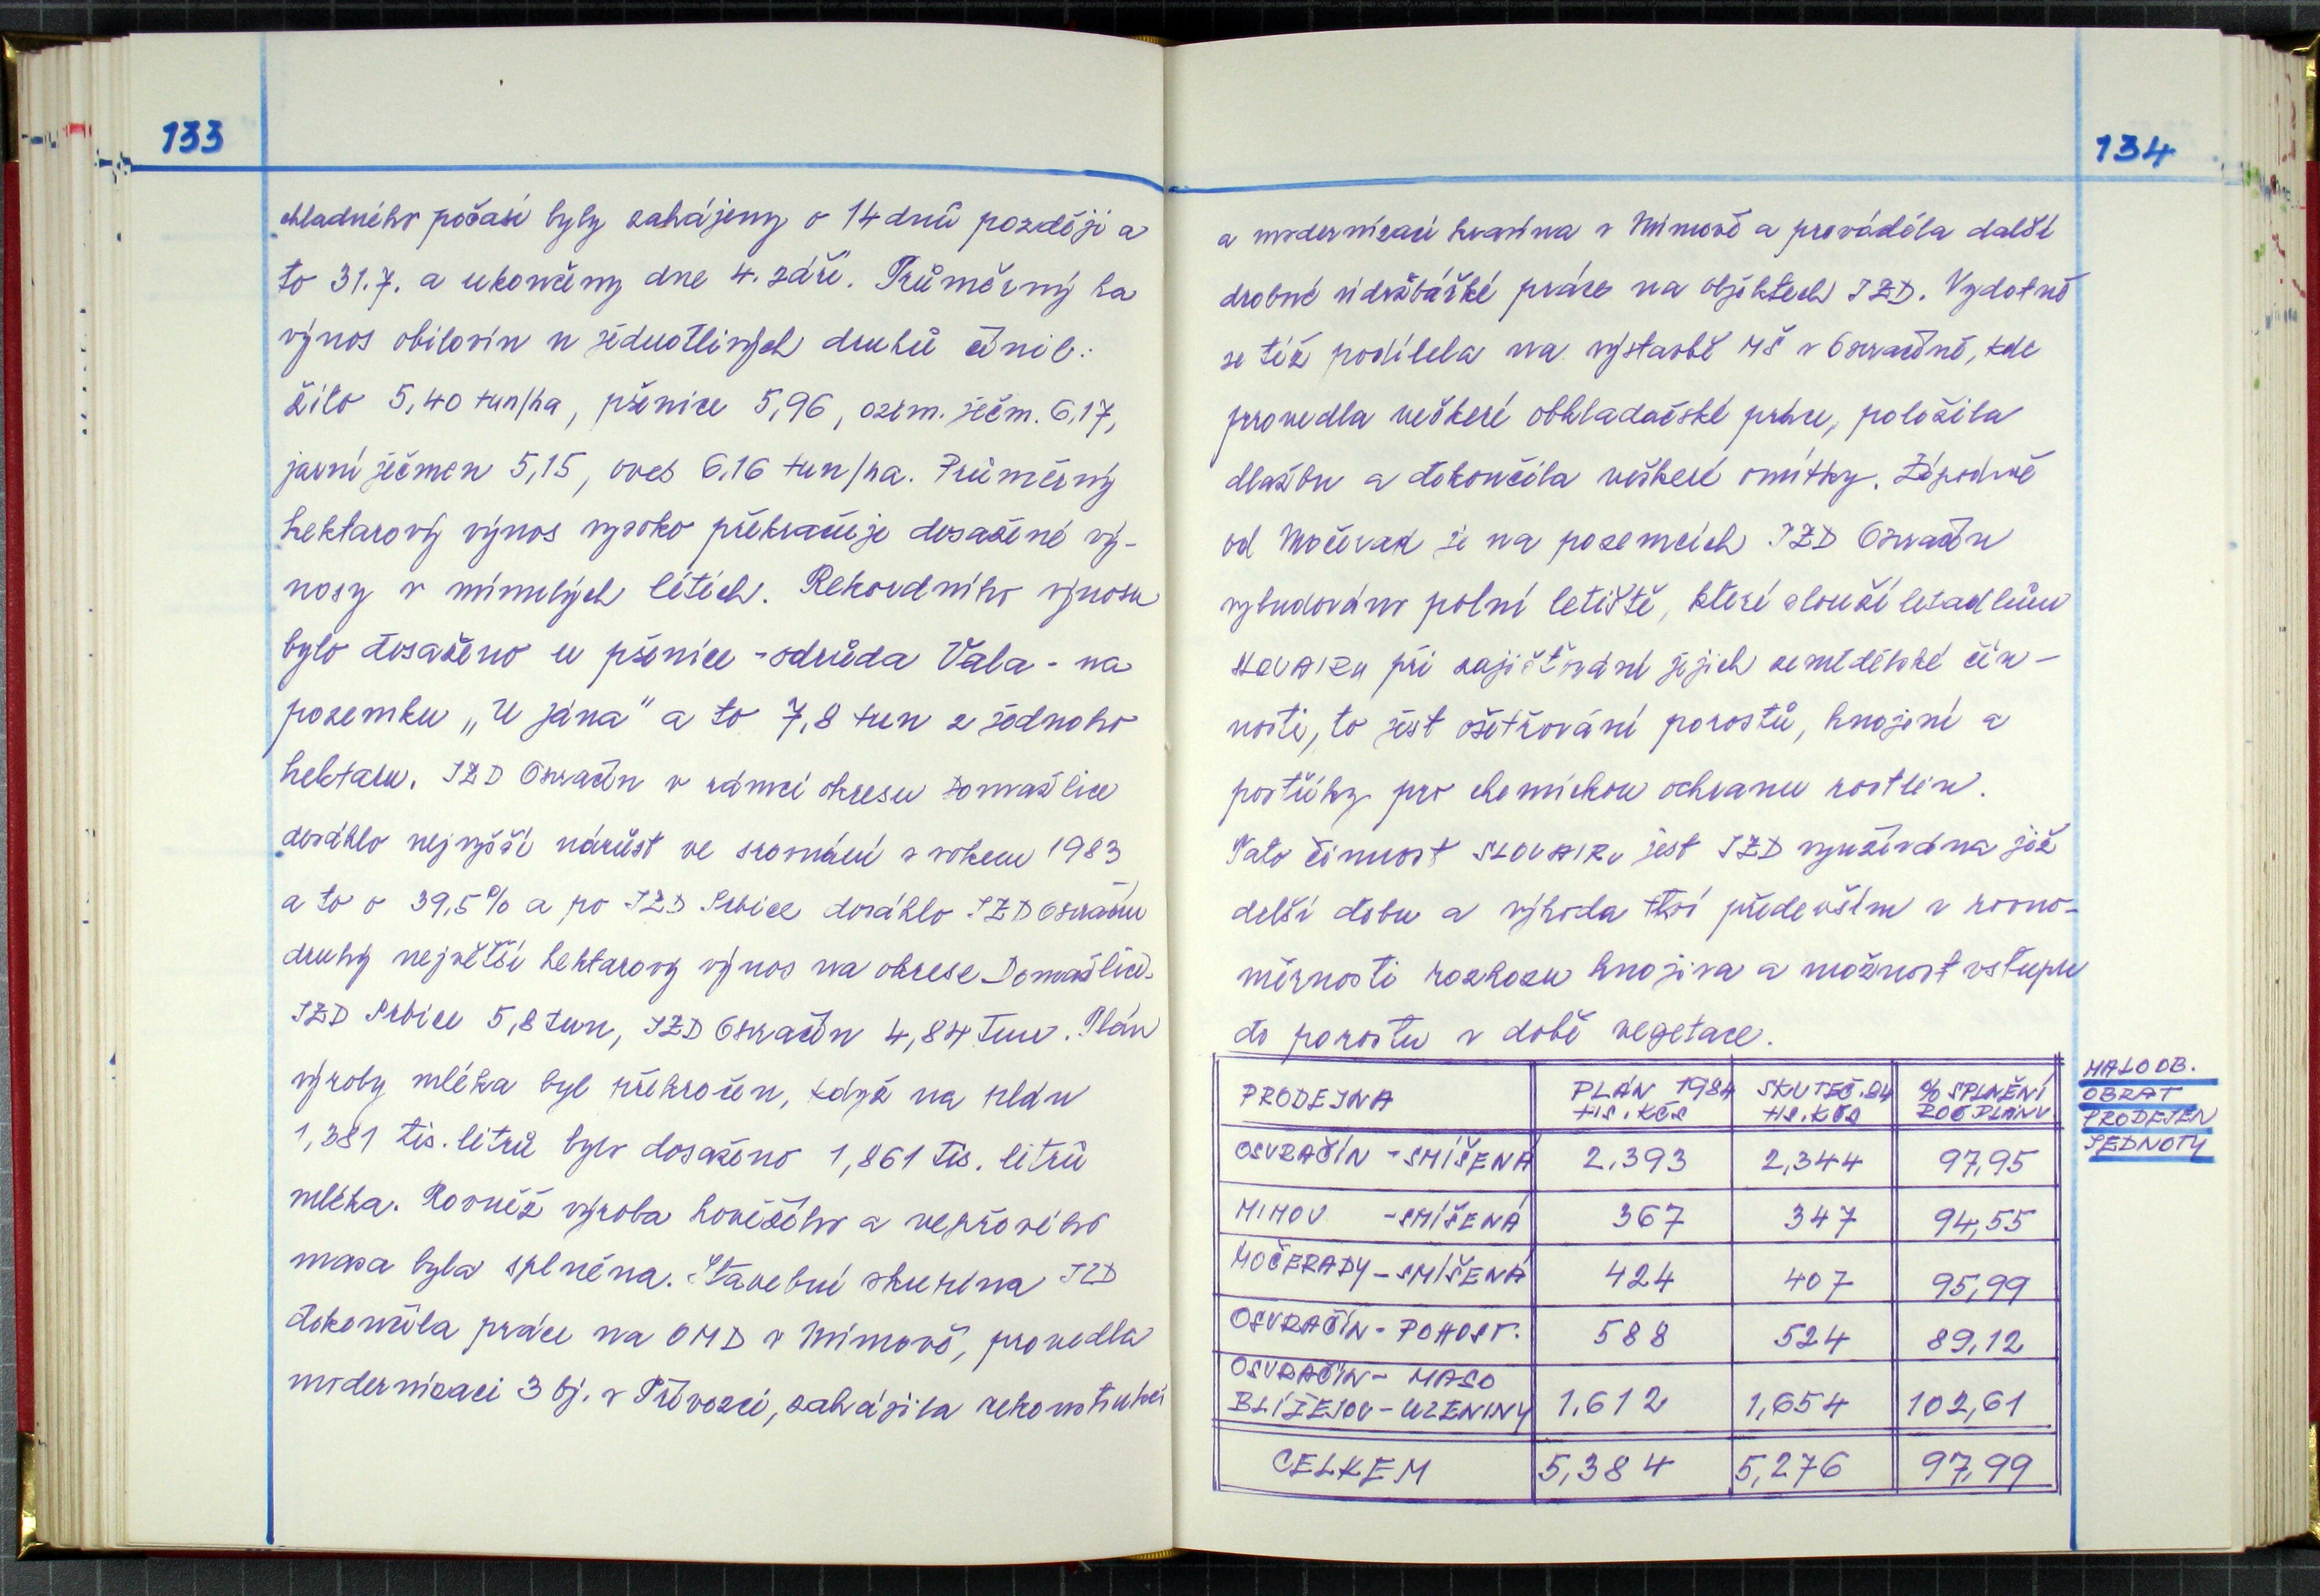 133
chladného počasí byly zahájeny o 14 dnů později a
to 31.7. a ukončeny dne 4. září. Průměrný ha
výnos obilovin u jednotlivých druhů činil:
žito 5,40 tun/ha, pšenice 5,96, ozim. ječm. 6,17,
jarní ječmen 5,15, oves 6,16 tun/ha. Průměrný
hektarový výnos vysoko překračuje dosažené vý-
nosy v minulých létech. Rekordního výnosu
bylo dosaženo u pšenice - odrůda Vala - na
pozemku „U jána" a to 7,8 tun z jednoho
hektaru. JZD Osvračín v rámci okresu Domažlice
dosáhlo nejvyšší nárůst ve srovnání s rokem 1983
a to o 39,5% a po JZD Srbice dosáhlo JZD Osvračín
druhý největší hektarový výnos na okrese Domažlice.
JZD Srbice 5,8 tun, JZD Osvračín 4,84 tun. Plán
výroby mléka byl překročen, když na plán
1,381 tis. litrů bylo dosaženo 1,861 tis. litrů
mléka. Rovněž výroba hovězího a vepřového
masa byla splněna. Stavební skupina JZD
dokončila práce na OMD v Mimově, provedla
modernizaci 3 bj. v Přívozci, zahájila rekonstrukci
134
a modernizaci kravína v Mimově a prováděla další
drobné údržbářské práce na objektech JZD. Vydatně
se též podílela na výstavbě MŠ v Osvračíně, kde
provedla veškeré obkladačské práce, položila
dlažbu a dokončila veškeré omítky. Západně
od Močerad je na pozemcích JZD Osvračín
vybudováno polní letiště, které slouží letadlům
SLOVAIRu při zajišťování jejich zemědělské čin-
nosti, to jest ošetřování porostů, hnojení a
postřiky pro chemickou ochranu rostlin.
Tato činnost SLOVAIRu jest JZD využívána již
delší dobu a výhoda tkví především v rovno-
měrnosti rozhozu hnojiva a možnost vstupu
do porostu v době vegetace.
MALOOB.
OBRAT
PRODEJEN
JEDNOTY
PRODEJNA PLÁN 1984 TIS. KČS SKUTEČ. 84 TIS. KČS % SPLNĚNÍ ROČ. PLÁNU
OSVRAČÍN - SMÍŠENÁ 2.393 2,344 97,95
MIMOV - SMÍŠENÁ 367 347 94,55
MOČERADY - SMÍŠENÁ 424 407 95,99
OSVRAČÍN - POHOST. 588 524 89,12
OSVRAČÍN - MASO
BLÍŽEJOV - UZENINY 1.612 1,654 102,61
CELKEM 5,384 5,276 97,99